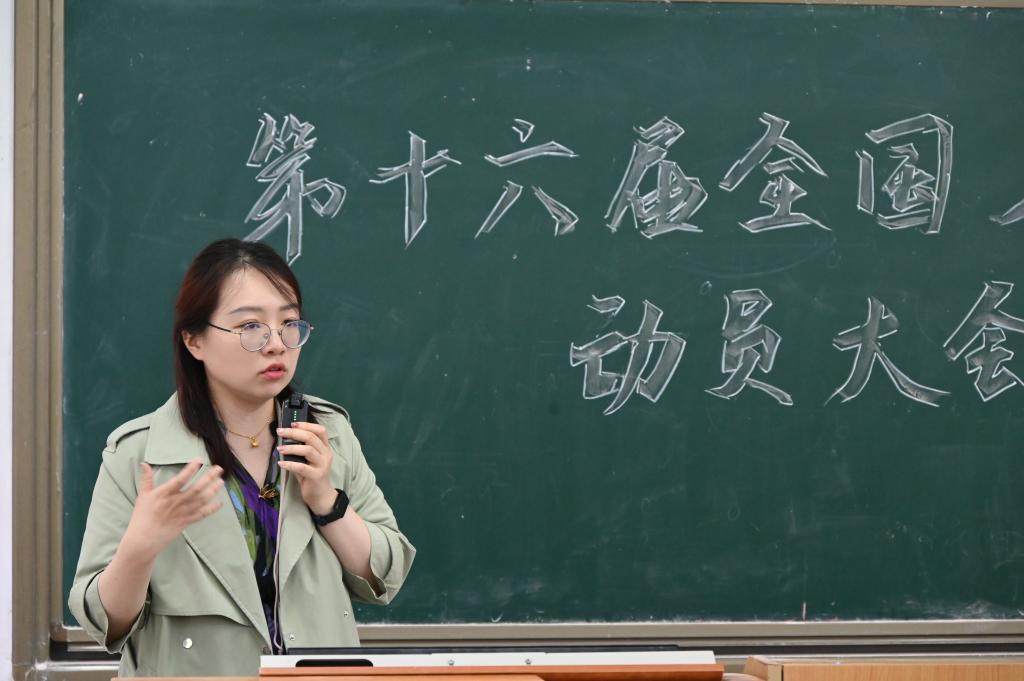 第十六届全国
动员大会